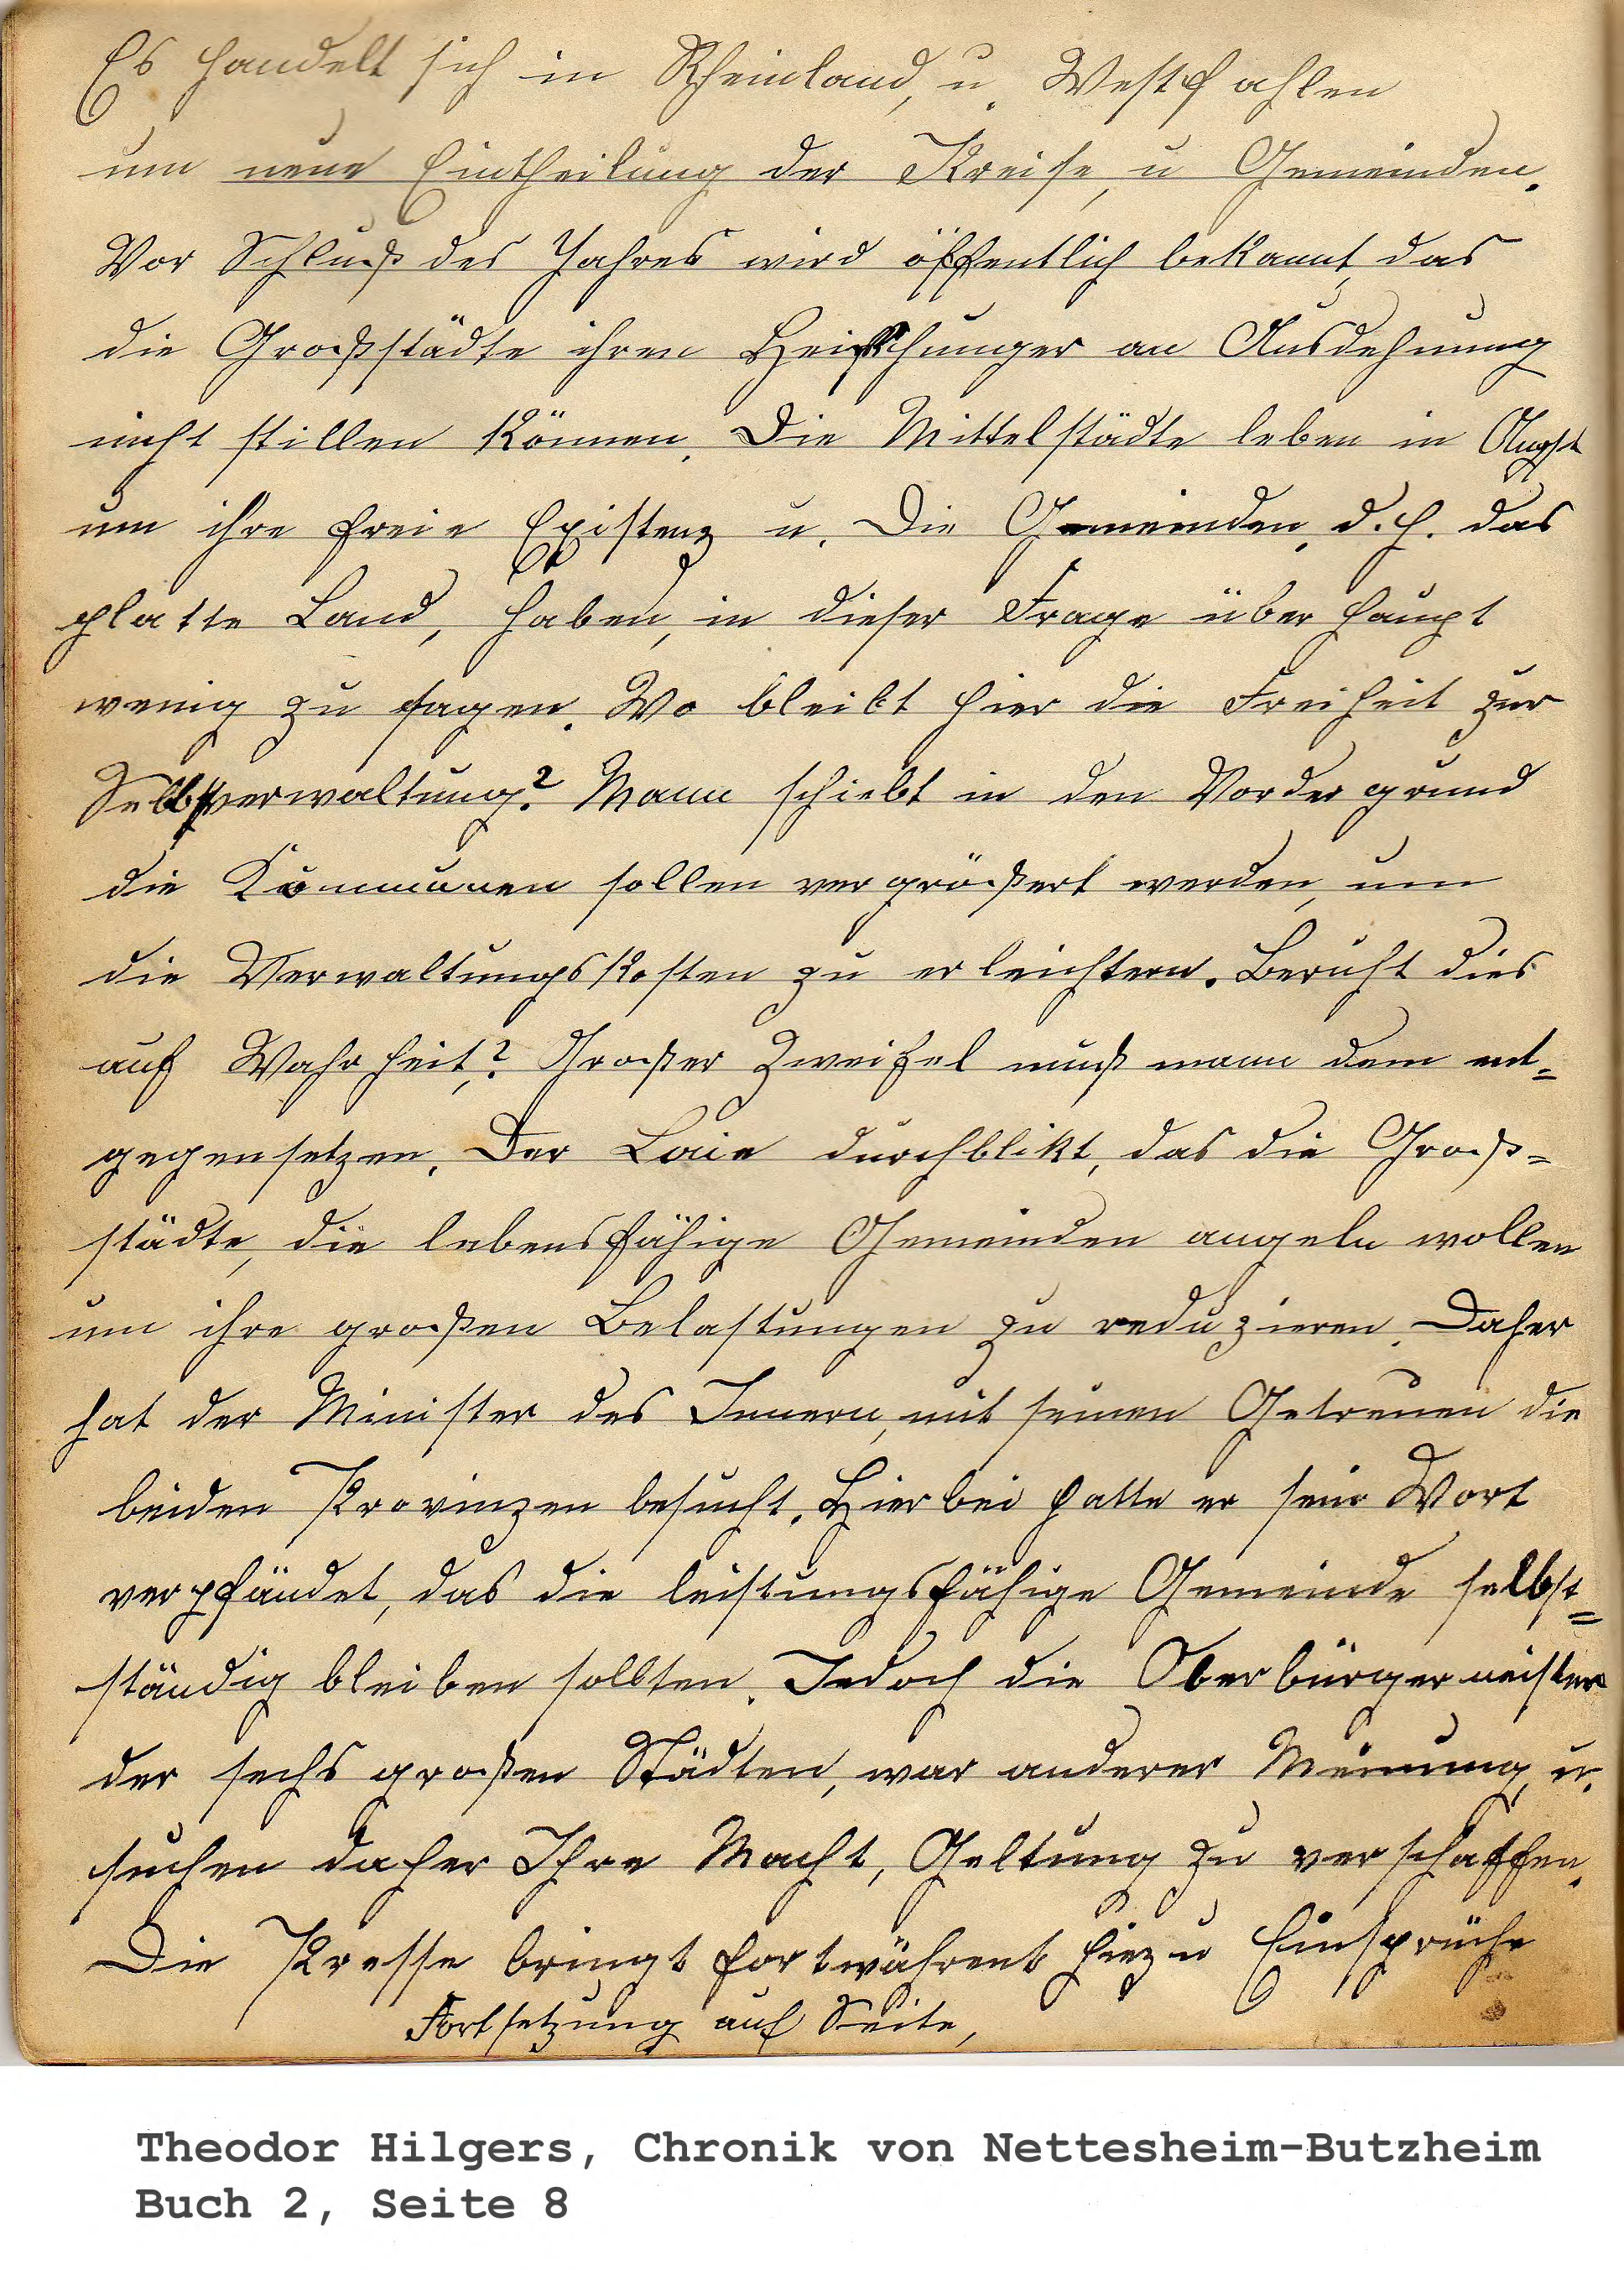 Es handelt sich in Rheinland, u. Westfahlen
um neue Eintheilung der Kreise, u Gemeinden.
Vor Schluß des Jahres wird öffentlich bekannt, das
die Großstädte ihren Heißhunger an Ausdehnung
nicht stillen können. Die Mittelstädte leben in Angst
um ihre freie Existenz u. Die Gemeinden, d.h. das
platte Land, haben, in dieser Frage über haupt
wenig zu sagen. Wo bleibt hier die Freiheit zur
Selbstverwaltung? Mann schiebt in den Vordergrund
die Kommunen sollen vergrößert werden, um
die Verwaltungskosten zu erleichtern. Beruht dies
auf Wahrheit,? Großer Zweifel muß mann dem ent=
gegensetzen. Der Laie durchblikt, das die Groß=
städte, die lebensfähige Gemeinden angeln wollen
um ihre großen Belastungen zu reduzieren. Daher
hat der Minister des Innern, mit seinen Getreuen die
beiden Provinzen besucht. Hierbei hatte er sein Wort
verpfändet, das die leistungsfähige Gemeinde selbst=
ständig bleiben sollten. Jedoch die Oberbürgermeister
der sechs großen Städten, war anderer Meinung, u.
suchen daher Ihre Macht, Geltung zu verschaffen.
Die Presse bringt fortwährent hiezu Einsprüche
Fortsetzung auf Seite,
Theodor Hilgers, Chronik von Nettesheim-Butzheim
Buch 2, Seite 8